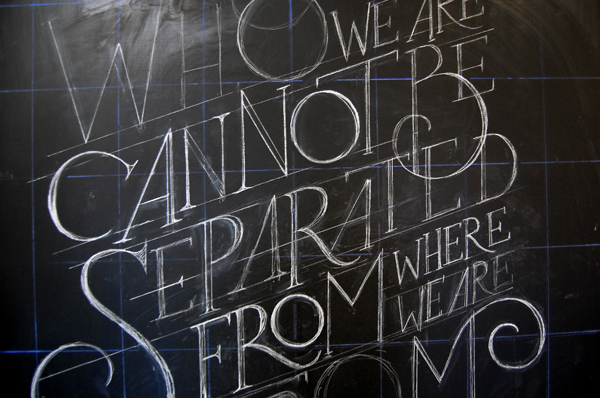 WHO WE ARE
CANNOT BE
SEPARATED
FROM WHERE
WE ARE